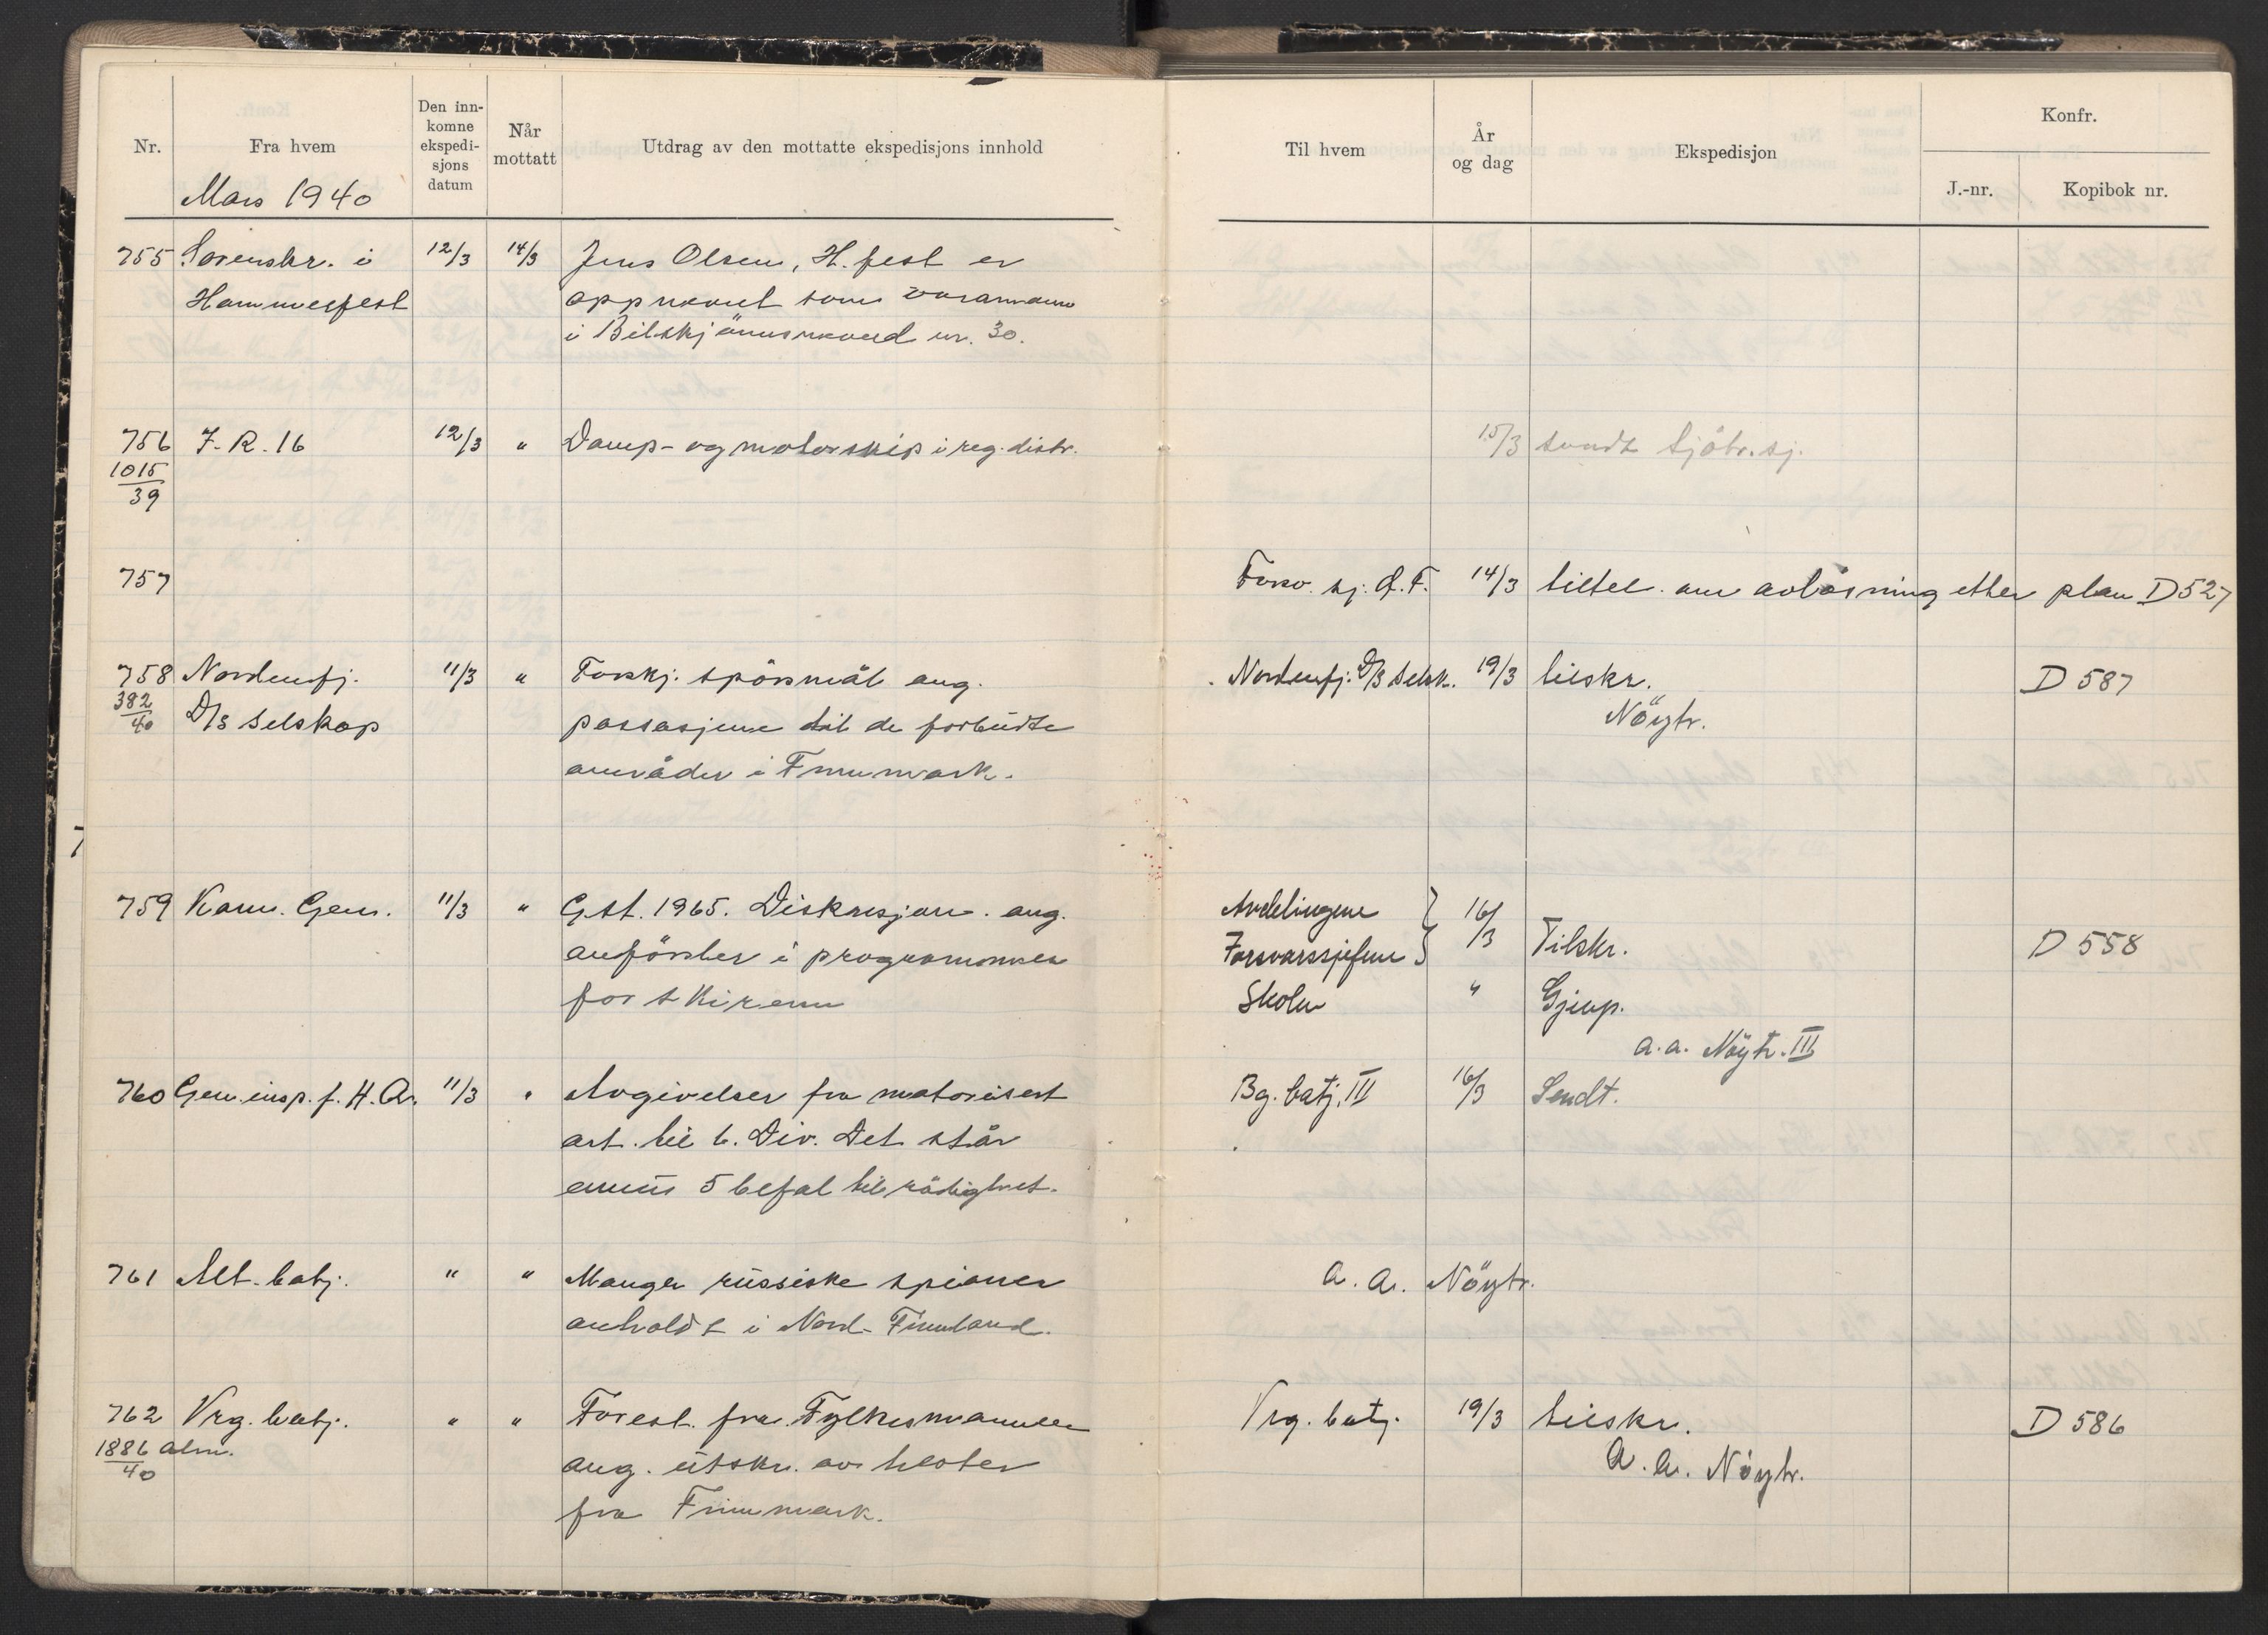 Nr.
Fra hvem
Den inn-
komne
ekspedi-
sjons
datum
Når
mottatt
Utdrag av den mottatte ekspedisjons innhold
Mars 1940
755 Sorenskr. i 12/3 14/3 Jens Olsen, H.fest er
Hammerfest oppnevnt som varamann
i Bilskjönnsnevnd nr. 30.
756 I.R.16 12/3 " Damp- og motorskip i reg. distr.
1015
39
757
758 Nordenfj. 11/3 " Forskj. spörsmål ang.
382
40 D/S selskap passasjerene til de forbudte
områder i Finnmark.
759 Komm. Gen. 11/3 " Gst. 1965. Diskresjon. ang.
anförsler i programmer
for skirenn
760 Gen.insp. f. H. Ar. 11/3 " Avgivelser fra motorisert
art. til 6. Div. Det står
ennu 5 befal til rådighet.
761 Alt. batj. " " Mange russiske spioner
anholdt i Nord-Finnland.
762 Vrg. batj. " " Forest. fra Fylkesmannen
1886 alm.
40 ang. utskr. av hester
fra Finnmark.
Til hvem
År
og dag
Ekspedisjon
Konfr.
J.-nr.
Kopibok nr.
15/3 sendt Sjötr.sj.
Forsv. sj. Ö.F. 14/3 tiltel. om avlösning etter plan D527
Nordenfj. D/S selsk. 19/3 tilskr. D 587
Nöytr.
Avdelingene } 16/3
Forsvarssjefene } Tilskr. D 558
Skolen " Gjenp.
a.a. Nöytr. III
Bg. batj. III 16/3 Sendt.
a. a. Nöytr.
Vrg. batj. 19/3 tilskr. D 586
a. a. Nöytr.